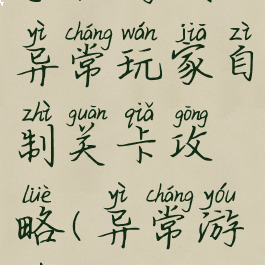 yì cháng wán jiā zì
异常玩家自
zhì guān qiǎ gōng
制关卡攻
lüè yì cháng yóu
略(异常游